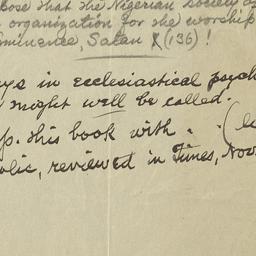 pose that the Nigerian Society of
organization for the worship
minence, Satan (136)!
ys in ecclesiastical psych
might well be called.
p. this book with . . (
olic, reviewed in Times, Nov